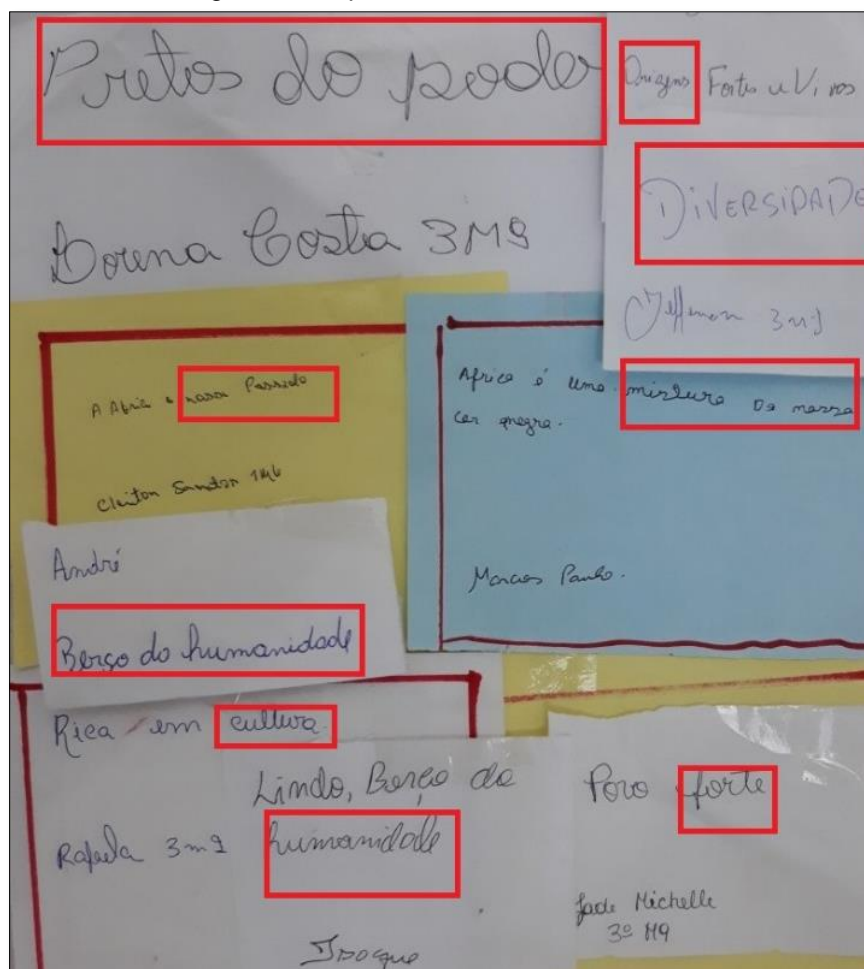 Pretos do poder
Lorena Costa 3M9
Origens Fortes e Vivos
DIVERSIDADE
Jefferson 3M9
A Africa é nosso Passado
Cleiton Santos 1M6
Africa é uma mistura Da nossa
cor negra.
Marcos Paulo.
André
Berço da humanidade
Rica em cultura
Rafaela 3m9
Lindo, Berço da
humanidade
Isaque
Povo forte
Jade Michelle
3º M9